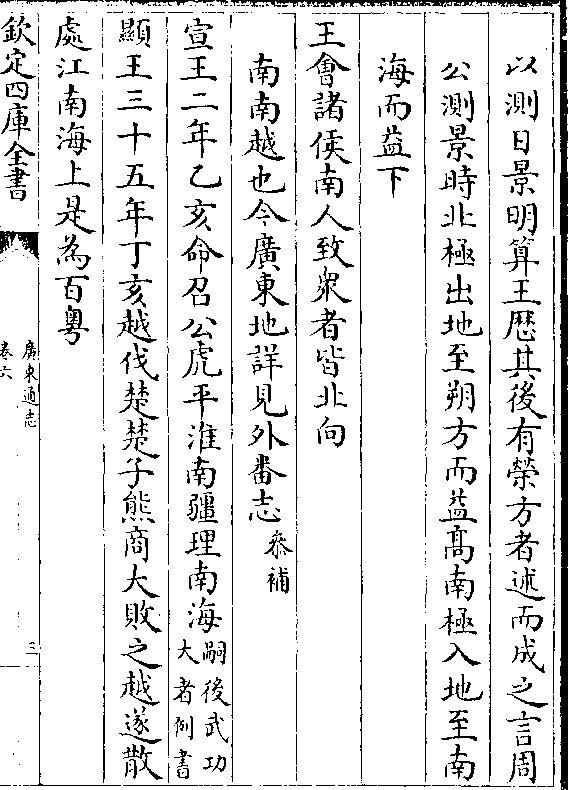 以測日景明算王歴其後有榮方者述而成之言周
公測景時北極出地至朔方而益髙南極入地至南
海而益下
王會諸侯南人致衆者皆北向
南南越也今廣東地詳見外番志叅補
宣王二年乙亥命召公虎平淮南疆理南海嗣後武功大者例書
顯王三十五年丁亥越伐楚楚子熊商大敗之越遂散
處江南海上是為百粤
欽定四庫全書
廣東通志
卷六
三